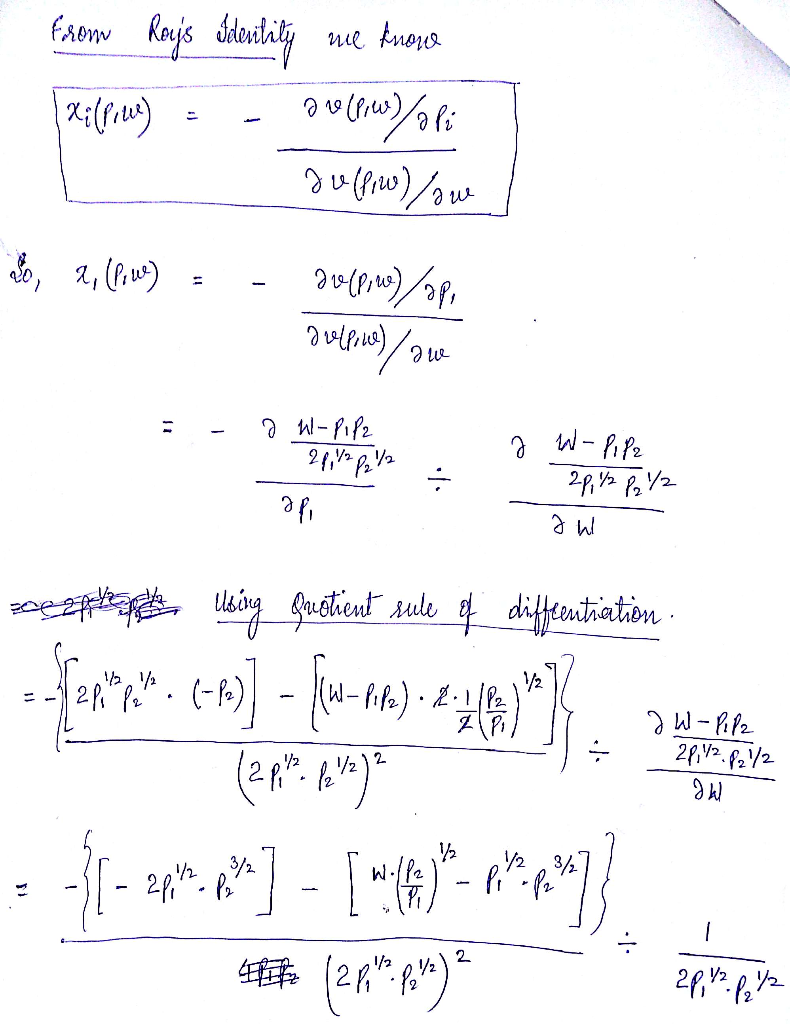 From Roy's Identity we know
xi(P,w) = - ∂v(P,w)/∂Pi / ∂v(P,w)/∂w
So, x₁(P,w) = - ∂v(P,w)/∂P₁ / ∂v(P,w)/∂w
= - ∂ (W-P₁P₂ / 2P₁^1/2 P₂^1/2) / ∂P₁ ÷ ∂ (W-P₁P₂ / 2P₁^1/2 P₂^1/2) / ∂W
Using Quotient rule of differentiation.
= -{[2P₁^1/2 P₂^1/2 . (-P₂)] - [(W-P₁P₂) . 2.1/2 (P₂/P₁)^1/2] / (2P₁^1/2 . P₂^1/2)^2} ÷ ∂ (W-P₁P₂ / 2P₁^1/2 . P₂^1/2) / ∂W
= -{[-2P₁^1/2 . P₂^3/2] - [W.(P₂/P₁)^1/2 - P₁^1/2 . P₂^3/2]} / (2P₁^1/2 . P₂^1/2)^2 ÷ 1 / 2P₁^1/2 . P₂^1/2